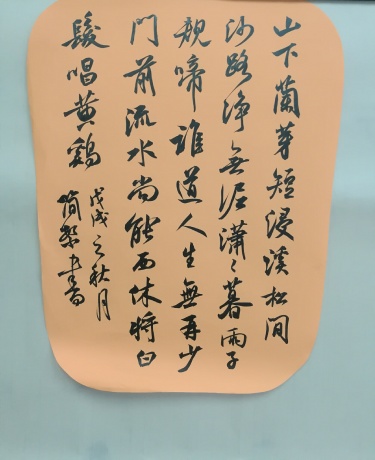 山下蘭芽短浸溪松間
沙路淨無泥瀟〻暮雨子
規啼誰道人生無再少
門前流水尚能西休將白
髮唱黄鷄
戊戌之秋月
簡書